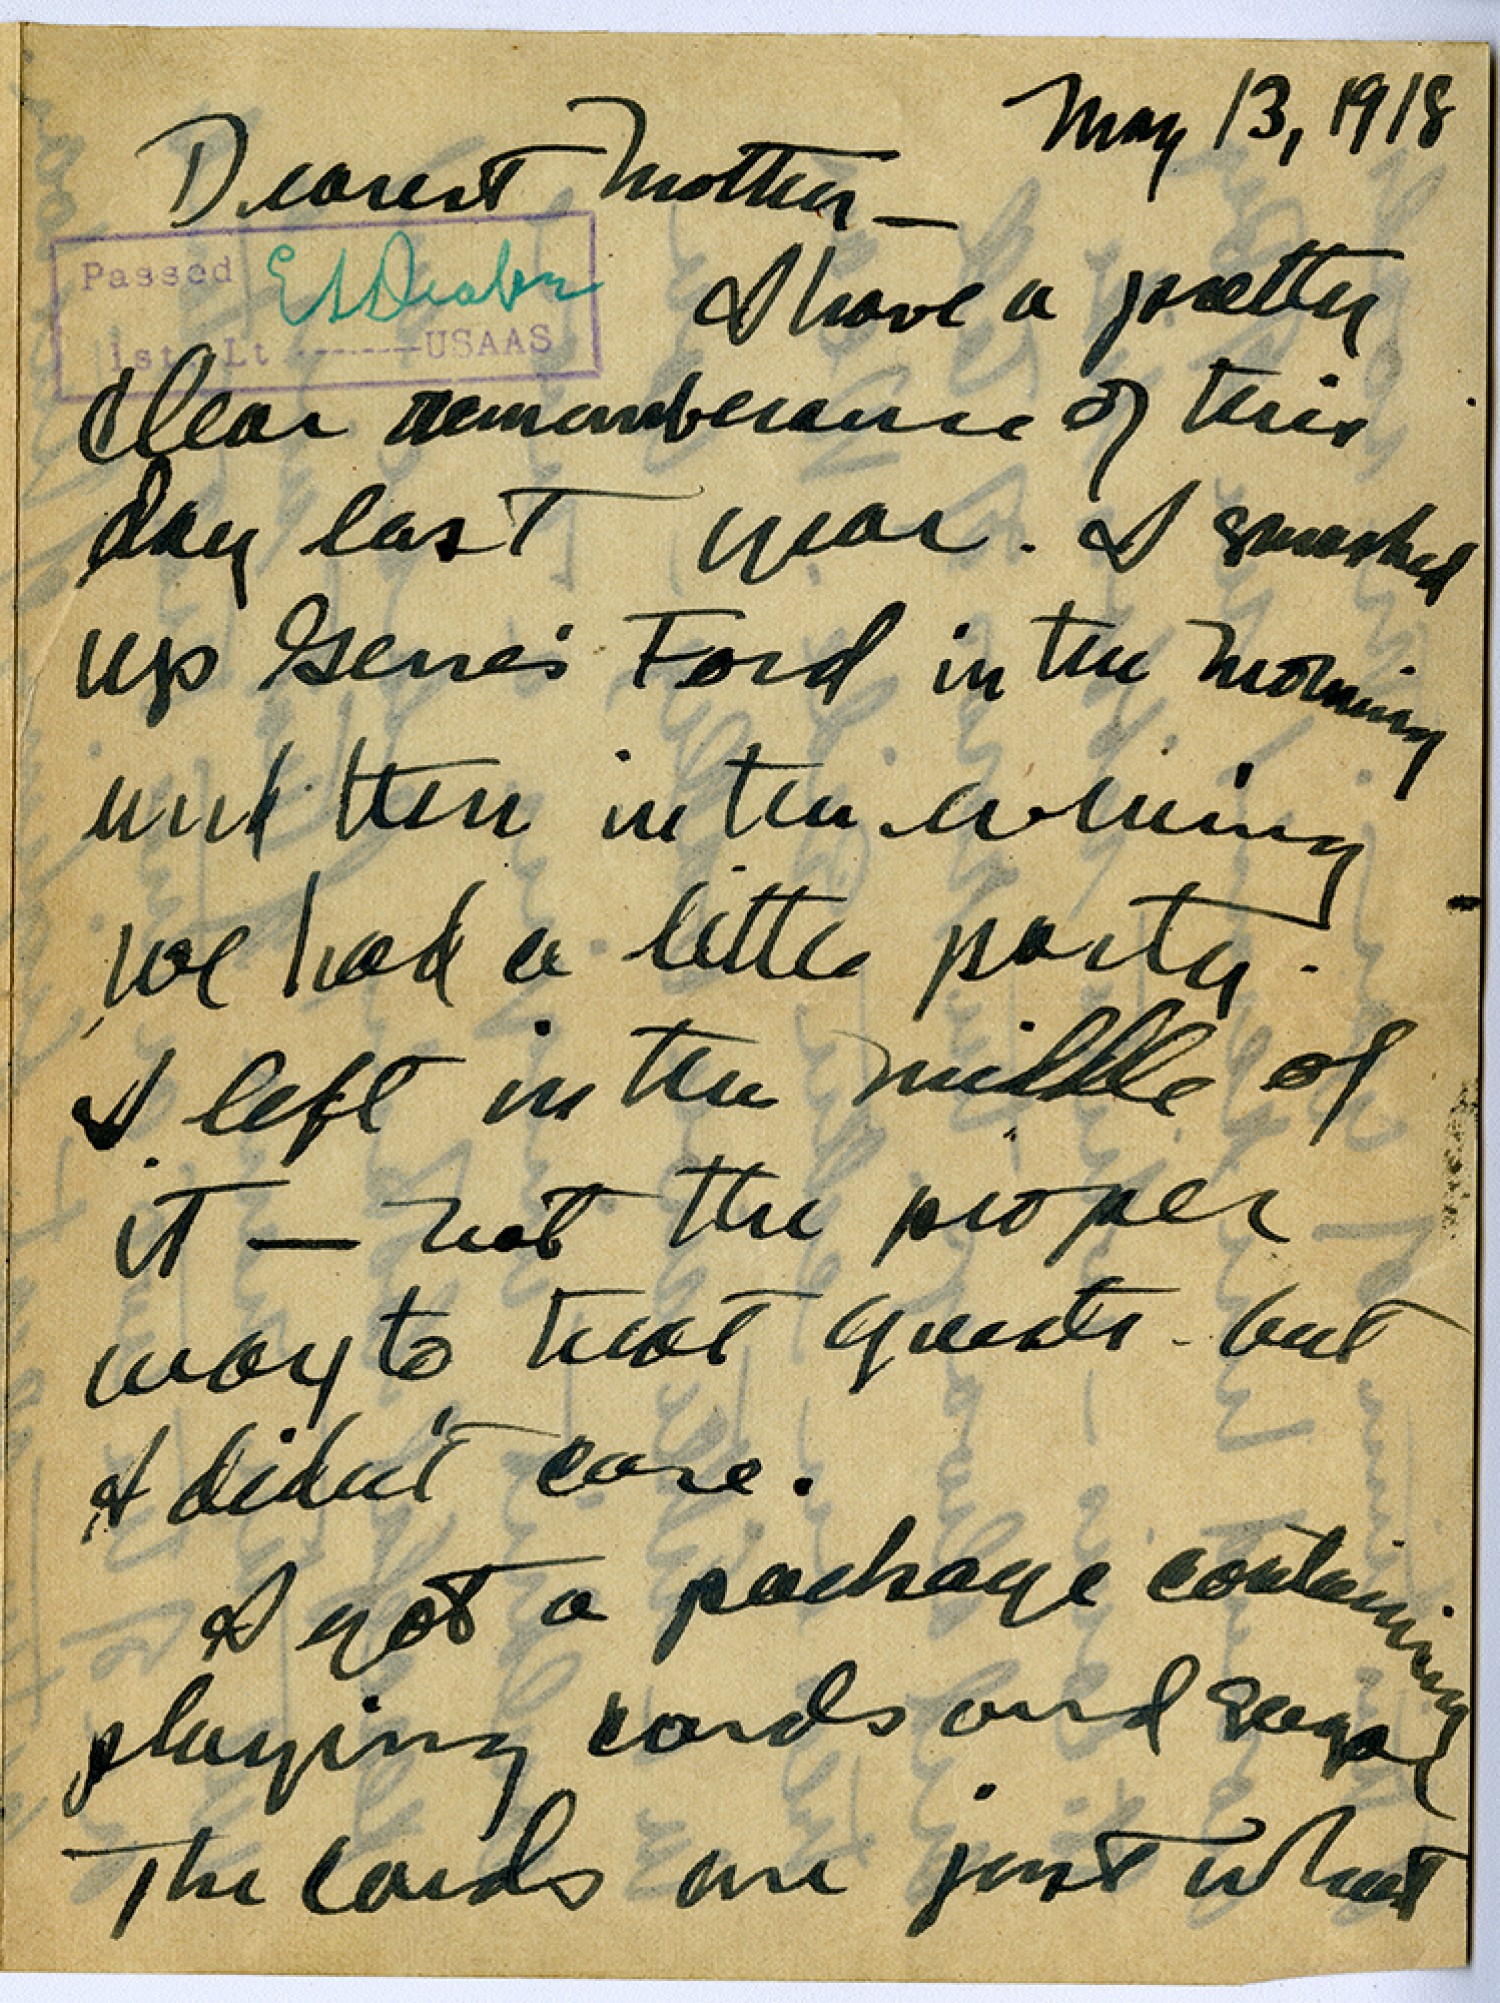 May 13, 1918
Dearest Mother —
Passed
1st Lt -------USAAS
I have a pretty
clear rememberance of this
day last year. I smashed
up Gene's Ford in the morning
and then in the evening
we had a little party.
I left in the middle of
it — not the proper
way to treat guests - but
I didn't care.
I got a package containing
playing cards and sugar
The cards are just what